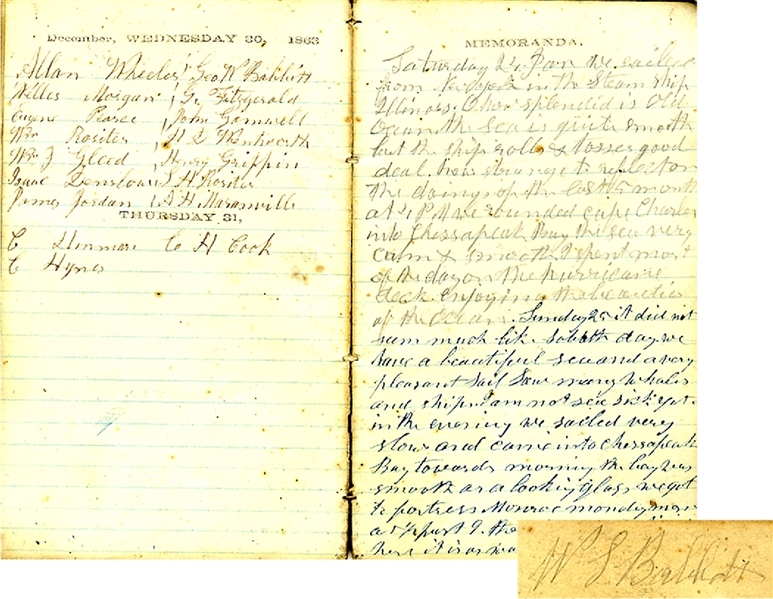 December, WEDNESDAY 30, 1863
Allan Wheeler Geo W Babbitt
Willes Morgan G. Fitzgerald
Eugene Pearce John Gamwell
Wm Rositer H L Wentworth
Wm J Gleed Henry Griffin
Isaac Denslow S H Rositer
James Jordan A H Maranville
THURSDAY 31,
C Hinman Co H Cook
C Hynes
MEMORANDA.
Saturday 24 Jan we sailed
from New York in the Steam ship
Illinois. O how splendid is old
Ocean the sea is quite smooth
but the ship rolls & tosses good
deal. how strange to reflect on
the doings of the last 5 month
at P M we rounded cape Charles
into Chessapeak Bay the sea very
Cam & smooth I spent most
of the day on the hurricane
deck enjoying the beauties
of the Ocean. Sunday 25 it did not
seem much like Sabath day we
have a beautiful sea and a very
pleasant sail Saw many whales
and ships I am not sea sick yet
in the evening we sailed very
slow and came into Chessapeak
Bay towards morning the bay was
smooth as a looking glass we got
to fortress Monroe monday
at ½ past 9. the
here it is as
W L Babbitt